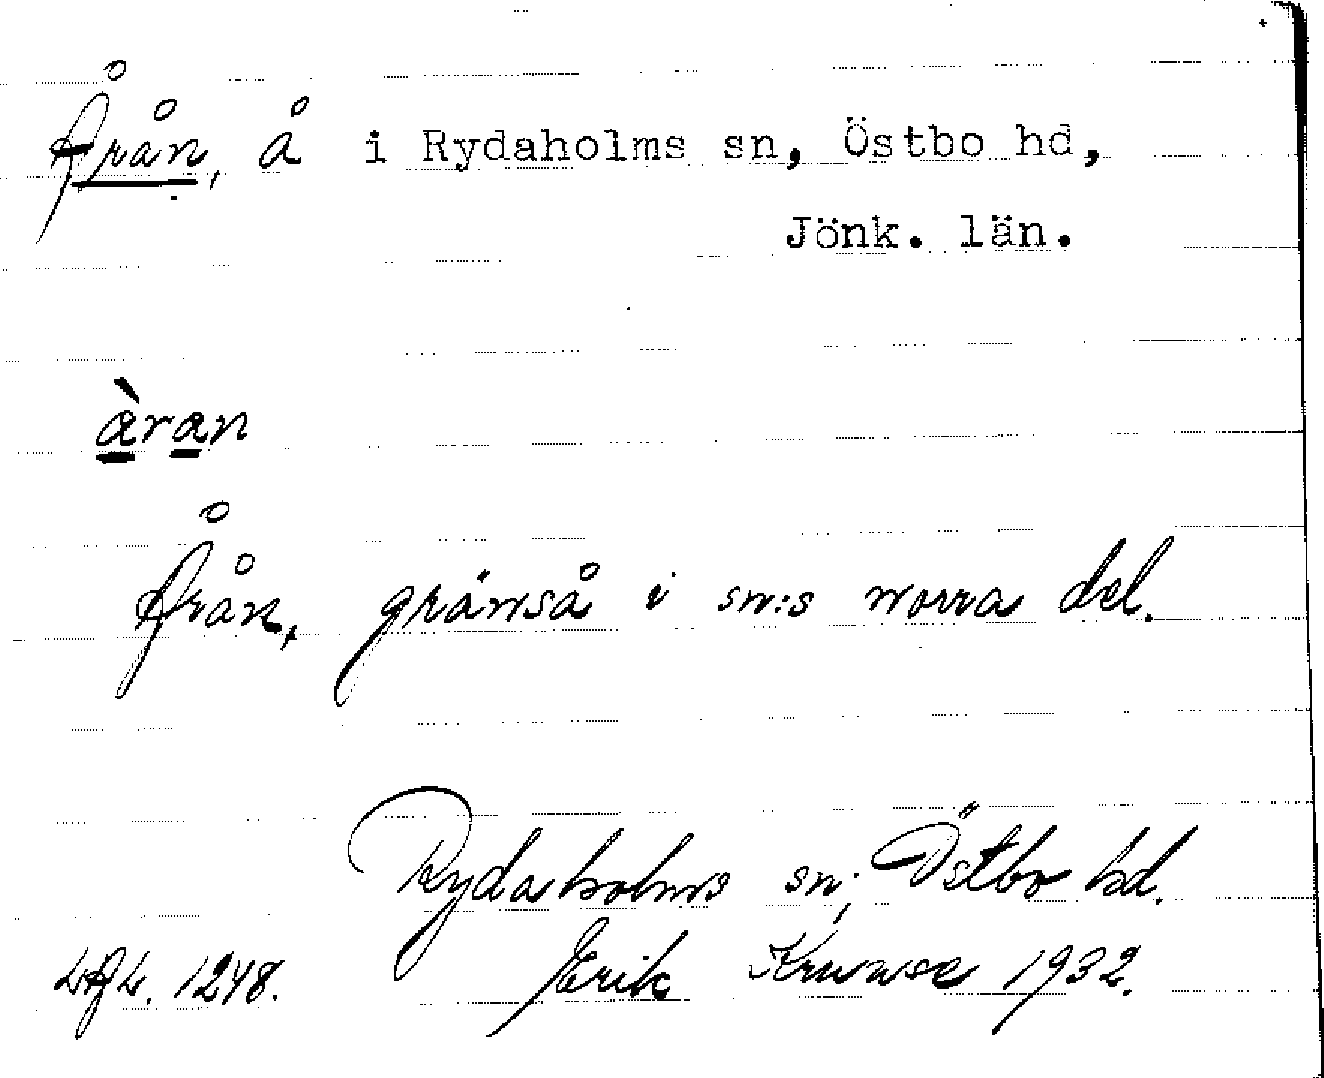 Årån, å i Rydaholms sn, Östbo hd,
Jönk. län.
àran
Årån, gränså i sn:s norra del.
Rydaholms sn; Östbo hd.
LAL. 1248. Erik Kruuse 1932.